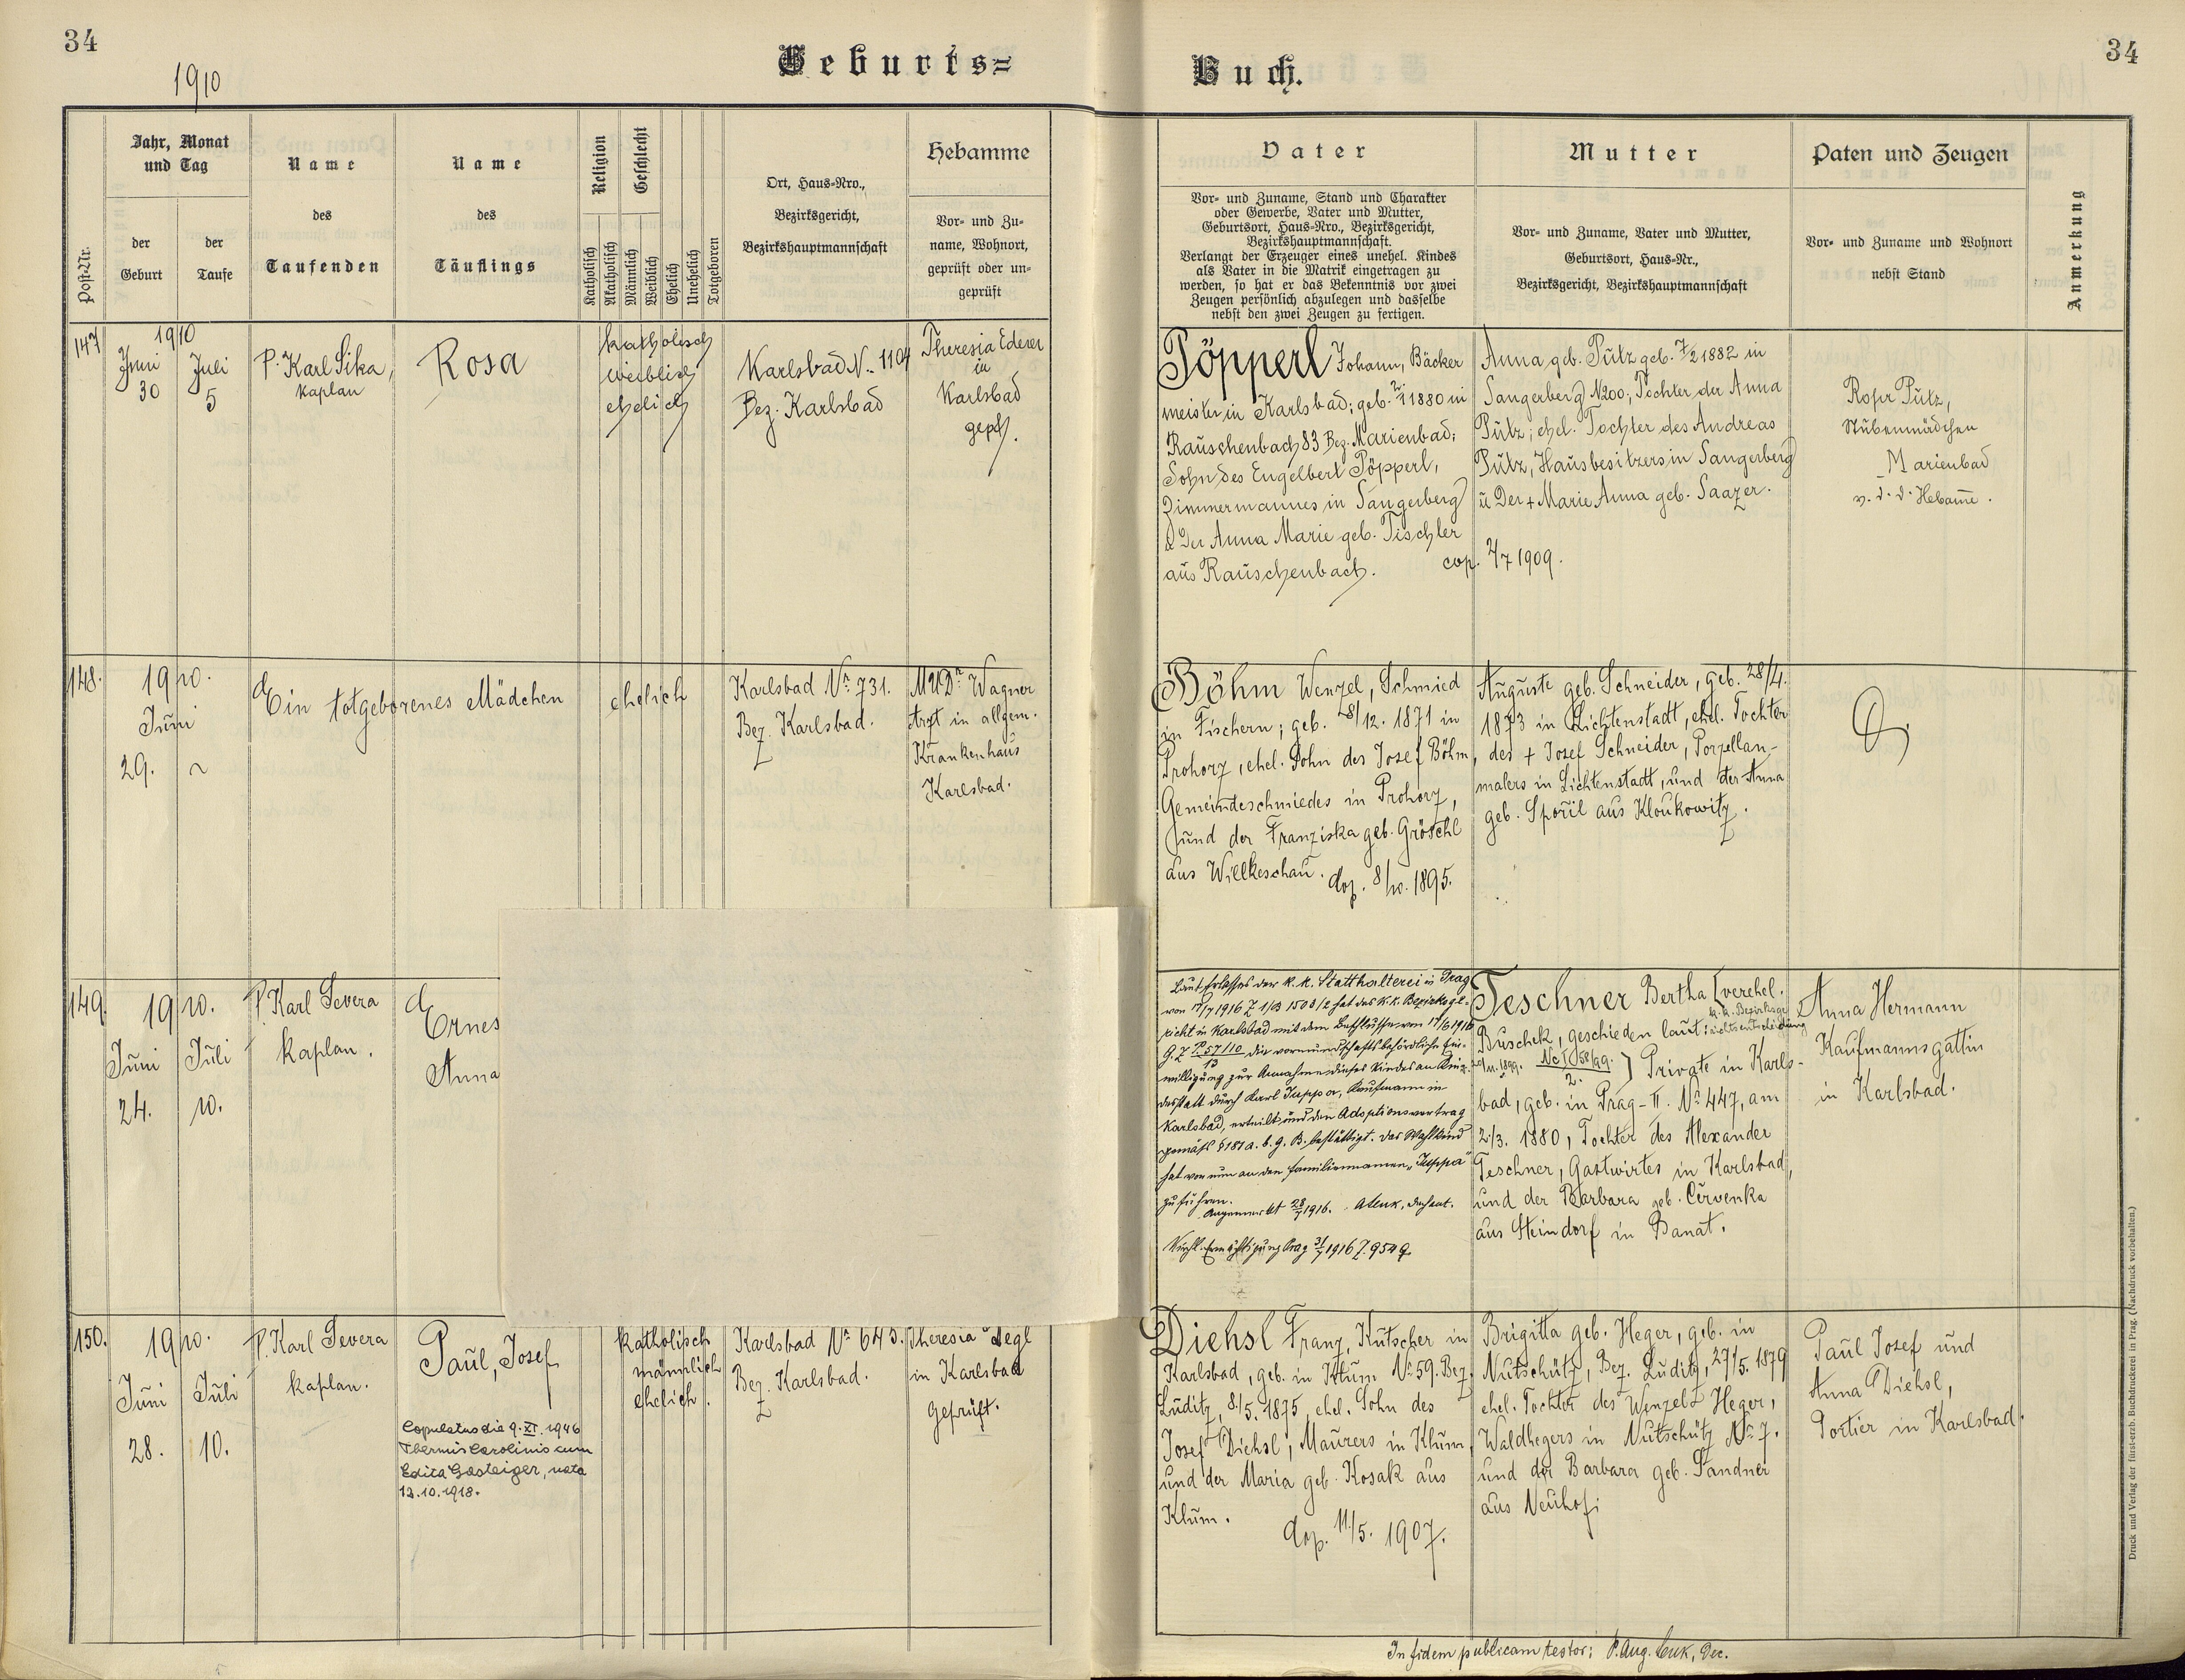 34
1910
Geburts=
Buch.
34
Post-Nr.
Jahr, Monat
und Tag
der
Geburt
der
Taufe
Name
des
Taufenden
Name
des
Täuflings
Religion
Katholisch
Akatholisch
Geschlecht
Männlich
Weiblich
Ehelich
Unehelich
Totgeboren
Ort, Haus-Nro.,
Bezirksgericht,
Bezirkshauptmannschaft
Hebamme
Vor- und Zu-
name, Wohnort,
geprüft oder un-
geprüft
Vater
Vor- und Zuname, Stand und Charakter
oder Gewerbe, Vater und Mutter,
Geburtsort, Haus-Nro., Bezirksgericht,
Bezirkshauptmannschaft.
Verlangt der Erzeuger eines unehel. Kindes
als Vater in die Matrik eingetragen zu
werden, so hat er das Bekenntnis vor zwei
Zeugen persönlich abzulegen und dasselbe
nebst den zwei Zeugen zu fertigen.
Mutter
Vor- und Zuname, Vater und Mutter,
Geburtsort, Haus-Nr.,
Bezirksgericht, Bezirkshauptmannschaft
Paten und Zeugen
Vor- und Zuname und Wohnort
nebst Stand
Anmerkung
147
1910
Juni
30
Juli
5
P. Karl Sika,
Kaplan
Rosa
katholisch
weiblich
ehelich
Karlsbad N. 1104
Bez. Karlsbad
Theresia Ederer
in
Karlsbad
gepr.
Pöpperl Johann, Bäcker
meister in Karlsbad; geb. 1880 in
Rauschenbach 83 Bez. Marienbad;
Sohn des Engelbert Pöpperl,
Zimmermannes in Sangerberg
u der Anna Marie geb. Tischler
aus Rauschenbach.
cop. 2/7 1909.
Anna geb. Pütz geb. 7/2 1882 in
Sangerberg N200; Tochter der Anna
Pütz; ehel. Tochter des Andreas
Pütz, Hausbesitzers in Sangerberg
u der + Marie Anna geb. Saazer.
Rosa Pütz,
Stubenmädchen
Marienbad
v. d. d. Hebamme.
148.
1910.
Juni
29.
Ein totgeborenes Mädchen
ehelich
Karlsbad Nr. 731.
Bez. Karlsbad.
MUDr. Wagner
Arzt in allgem.
Krankenhaus
Karlsbad.
Böhm Wenzel, Schmied
in Fischern; geb. 28/12. 1871 in
Prohorz, ehel. Sohn des Josef Böhm,
Gemeindeschmiedes in Prohorz,
und der Franziska geb. Gröschl
aus Willkeschau. cop. 8/10. 1895.
Auguste geb. Schneider, geb. 28/4.
1873 in Lichtenstadt, ehel. Tochter
des + Josef Schneider, Porzellan-
malers in Lichtenstadt, und der Anna
geb. Spořil aus Kloukowitz.
149.
1910.
Juni
24.
Juli
10.
P. Karl Severa
Kaplan.
Ernes
Anna
Laut Erlasses der k. k. Statthalterei in Prag
von 17/7 1916 Z. 1/B 1503/2 hat das k. k. Bezirksge-
richt in Karlsbad mit dem Beschlusse vom 17/6 1916
G. Z. P. 57/10 die vormundschaftsbehördliche Ein-
13
willigung zur Annahme dieses Kindes an Kin-
desstatt durch Karl Juppa, Kaufmann in
Karlsbad, erteilt und den Adoptionsvertrag
gemäß § 181 a. b. G. B. bestättigt. Das Wahlkind
hat von nun an den Familiennamen „Juppa"
zu führen.
Angemerkt 28/7 1916. A. Cenk, Dechant.
Kirchl. Ermächtigung Prag 21/7 1916 Z. 9549.
Teschner Bertha [verehel.
Buschek, geschieden laut k. k. Bezirksge-
richtsentscheidung
11. 1899. Nc I 58/99.
2. ) Private in Karls-
bad, geb. in Prag-II. No 447, am
2/3. 1880, Tochter des Alexander
Teschner, Gastwirtes in Karlsbad,
und der Barbara geb. Červenka
aus Steindorf in Banat.
Anna Hermann
Kaufmannsgattin
in Karlsbad.
150.
1910.
Juni
28.
Juli
10.
P. Karl Severa
Kaplan.
Paul, Josef
Copulatus die 9. XI. 1946
Thermis Carolinis cum
Edita Gasteiger, nata
12.10.1918.
katholisch
männlich
ehelich.
Karlsbad No 643.
Bez. Karlsbad.
Theresia Legl
in Karlsbad
geprüft.
Diehsl Franz, Kutscher in
Karlsbad, geb. in Klum No 59. Bez.
Luditz, 8/5. 1875, ehel. Sohn des
Josef Diehsl, Maurers in Klum,
und der Maria geb. Kosak aus
Klum.
cop. 11/5. 1907.
Brigitta geb. Heger, geb. in
Nutschütz, Bez. Luditz, 27/5. 1879
ehel. Tochter des Wenzels Heger,
Waldhegers in Nutschütz No 7.
und der Barbara geb. Sandner
aus Neuhof
Paul Josef und
Anna Diehsl,
Portier in Karlsbad.
In fidem publicam testor: P. Aug. Cenk, Dec.
Druck und Verlag der fürst-erzb. Buchdruckerei in Prag. (Nachdruck vorbehalten.)